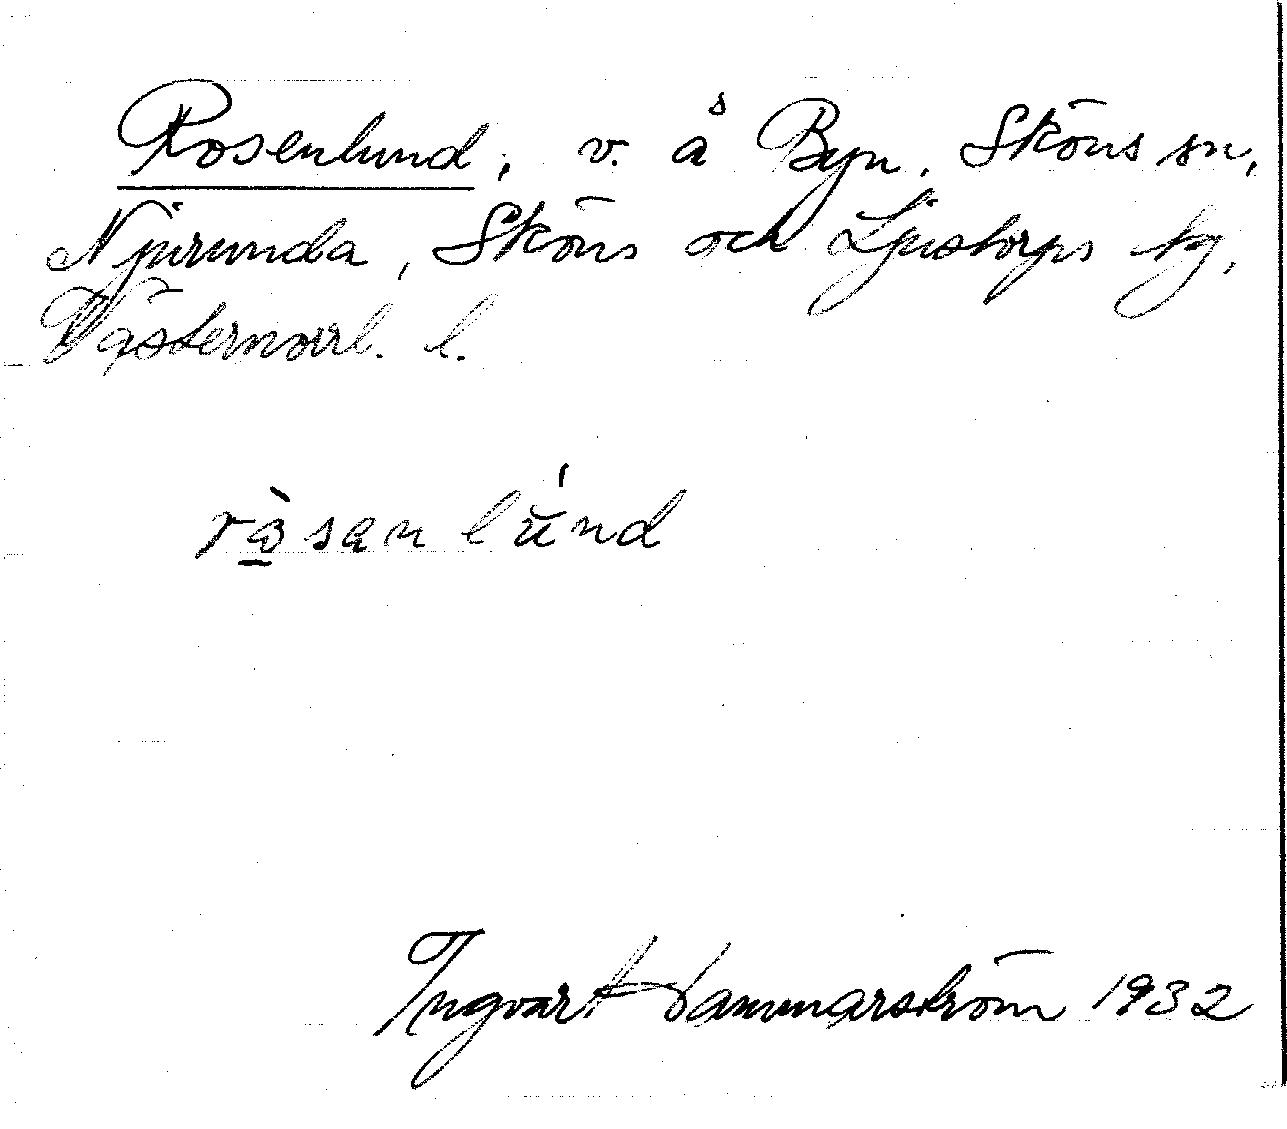 Rosenlund, v. å Byn, Sköns sn,
Njurunda, Sköns och Ljustorps tg,
Västernorrl. l.
Ingvar Hammarström 1932